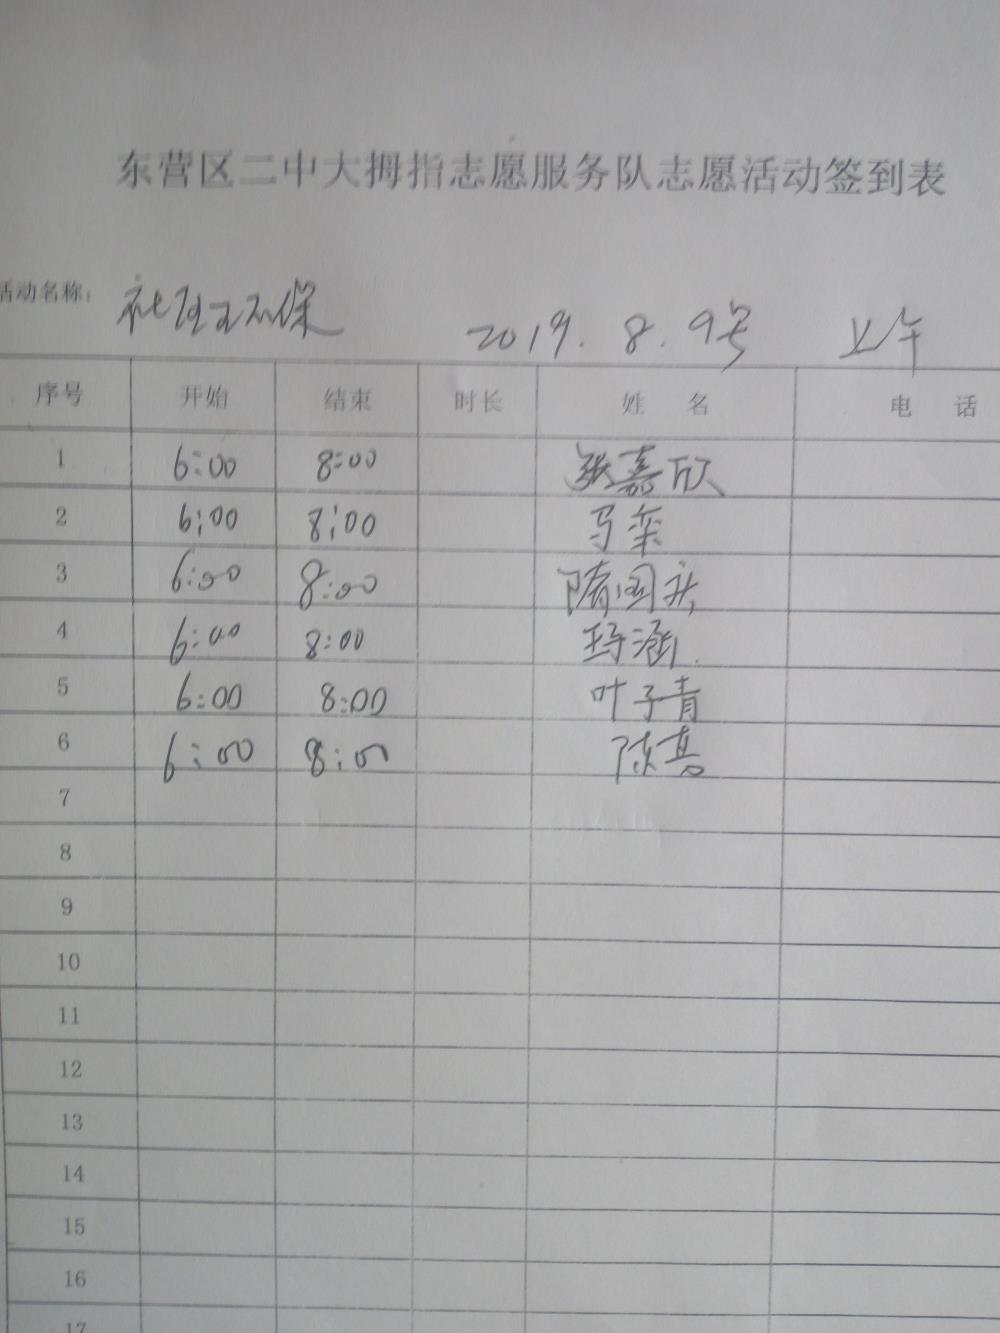 东营区二中大拇指志愿服务队志愿活动签到表
活动名称: 社区环保 2019.8.9号 上午
序号 开始 结束 时长 姓 名 电 话
1 6:00 8:00 张嘉欣
2 6:00 8:00 马栾
3 6:00 8:00 隋国兴
4 6:00 8:00 涵
5 6:00 8:00 叶子青
6 6:00 8:00 陈
7
8
9
10
11
12
13
14
15
16
17